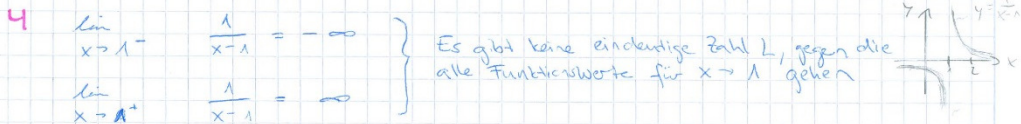 4
lim x→1⁻ 1/(x-1) = -∞
Es gibt keine eindeutige Zahl L, gegen die
alle Funktionswerte für x→1 gehen
lim x→1⁺ 1/(x-1) = ∞
y y=1/(x-1)
1 2 x